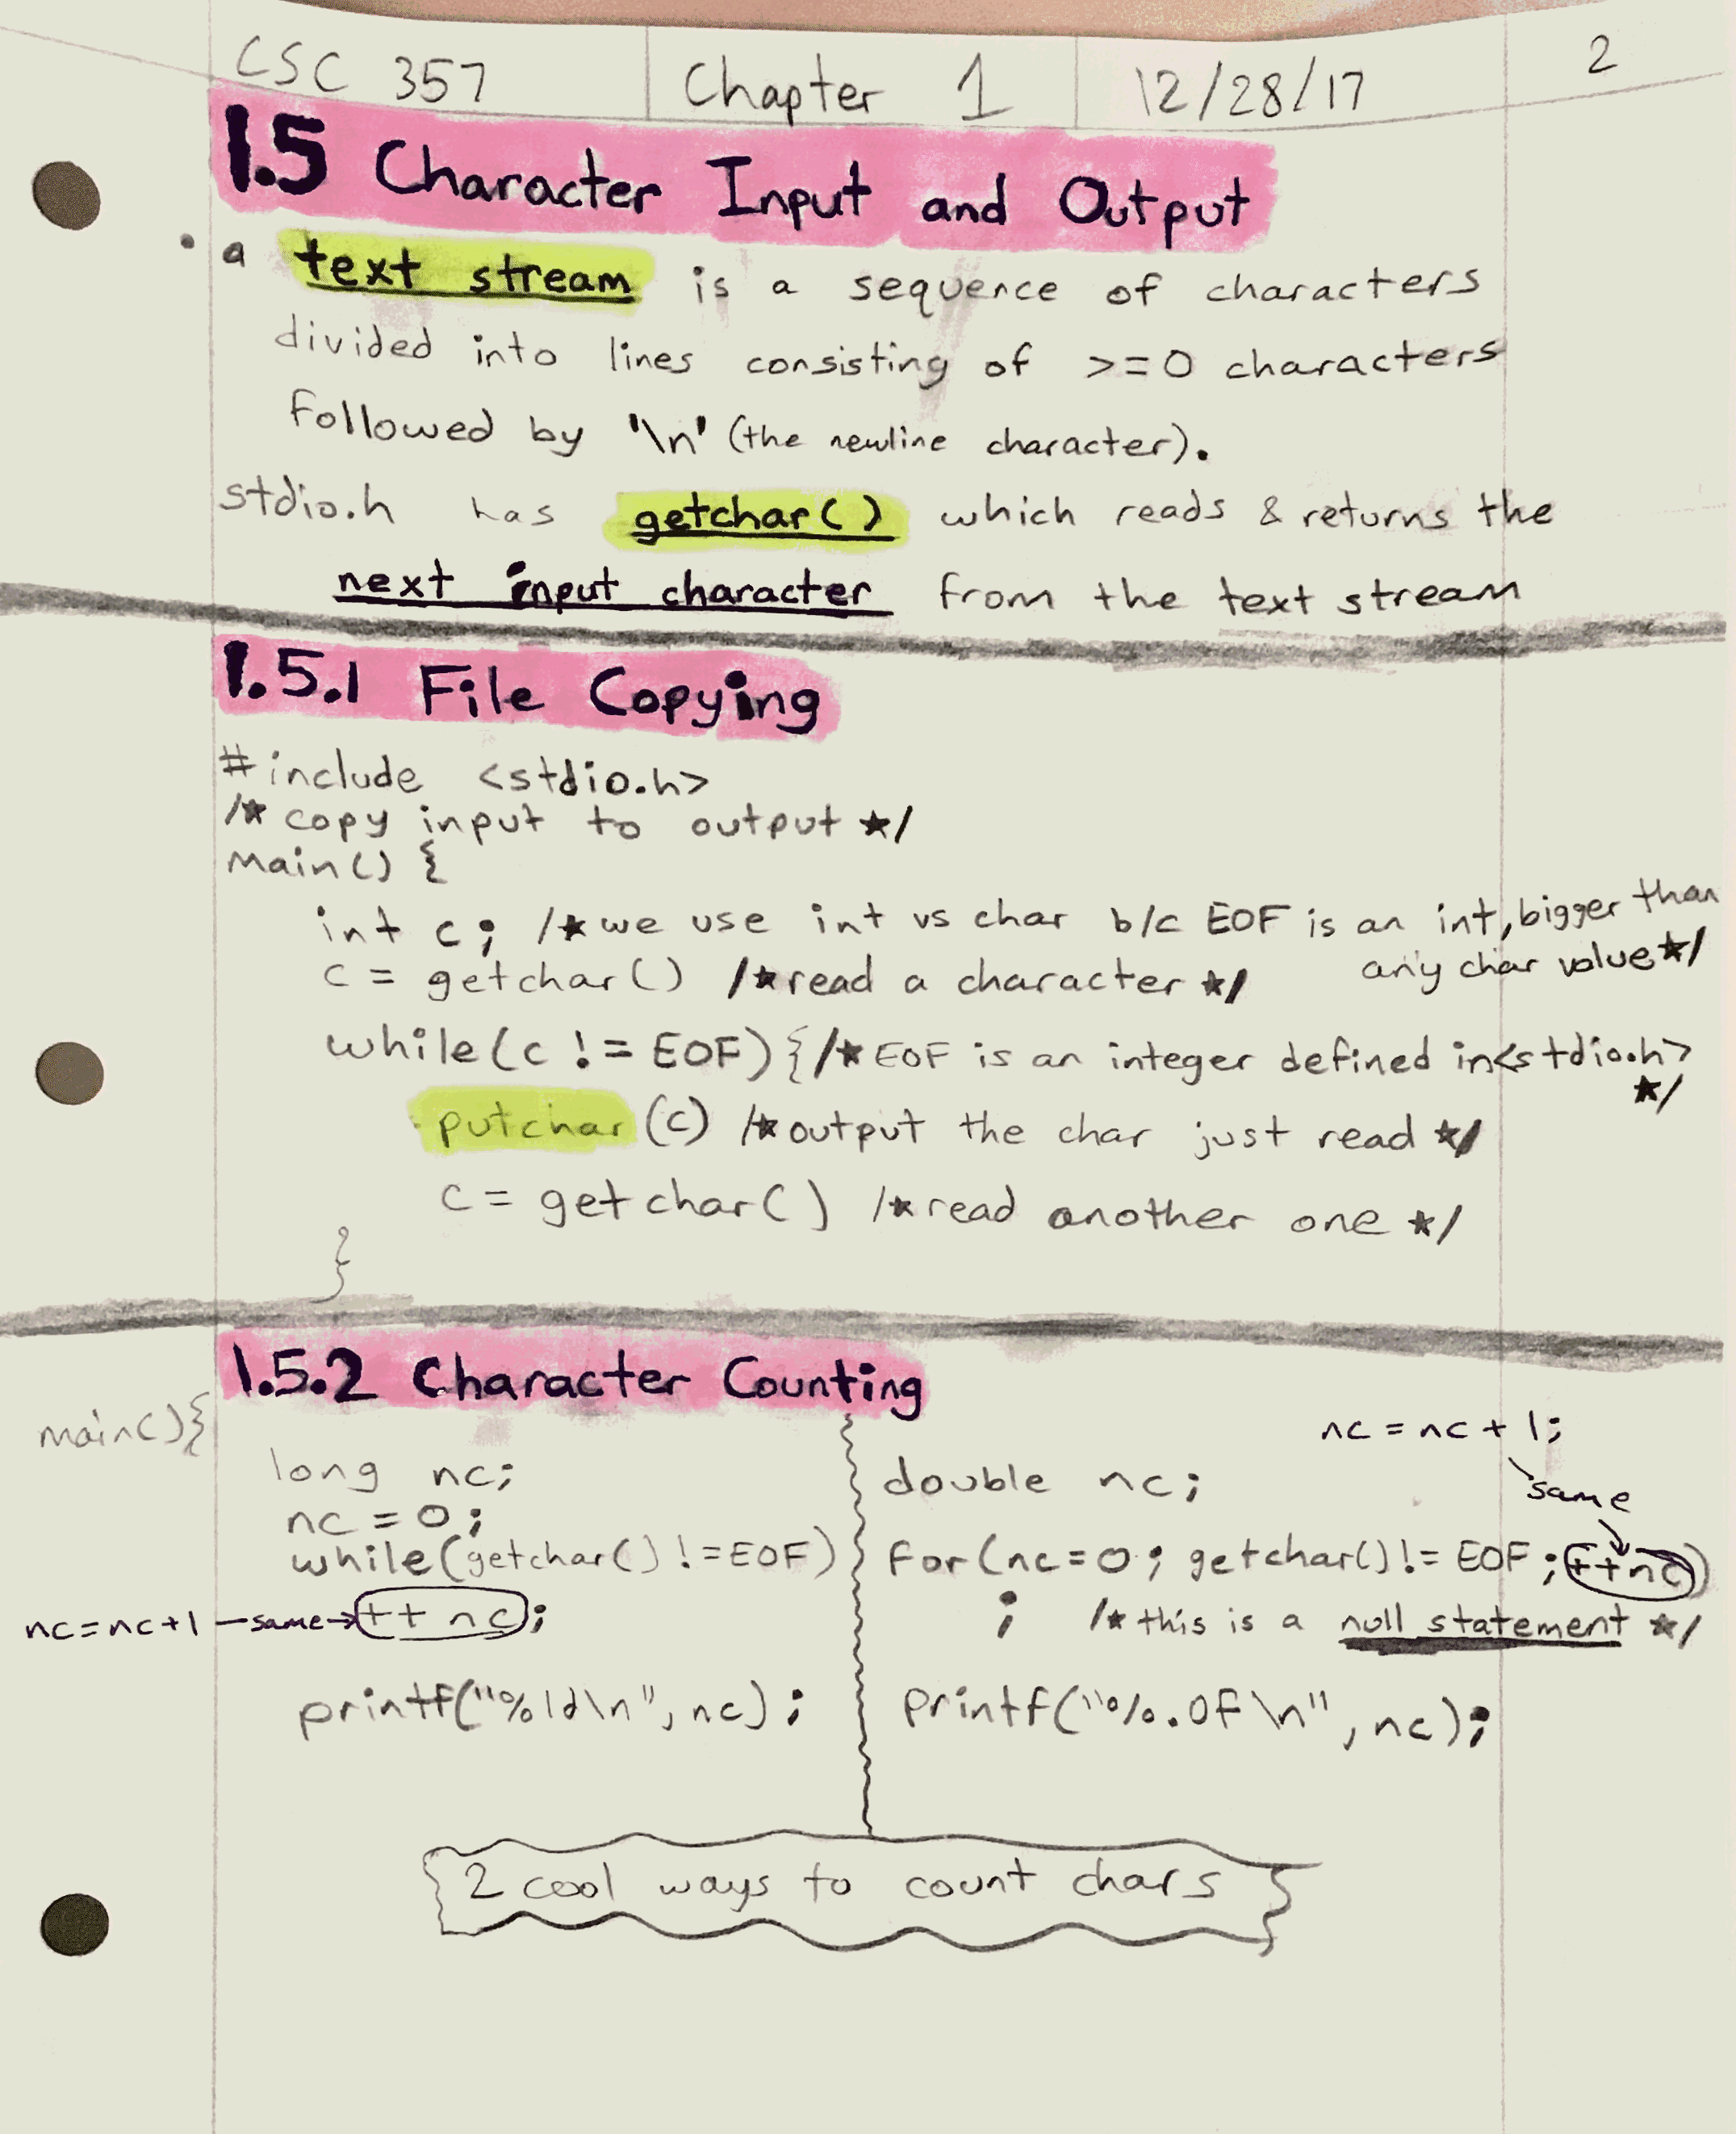 CSC 357 Chapter 1 12/28/17 2
1.5 Character Input and Output
• a text stream is a sequence of characters
divided into lines consisting of >=0 characters
followed by '\n' (the newline character).
stdio.h has getchar() which reads & returns the
next input character from the text stream
1.5.1 File Copying
#include <stdio.h>
/* copy input to output */
main() {
int c; /* we use int vs char b/c EOF is an int, bigger than
any char value */
c = getchar() /* read a character */
while(c != EOF) { /* EOF is an integer defined in <stdio.h>
*/
putchar(c) /* output the char just read */
c = getchar() /* read another one */
}
1.5.2 Character Counting
main(){
long nc;
nc = 0;
while(getchar() != EOF)
nc=nc+1 —same→ ++nc;
printf("%ld\n", nc);
nc = nc + 1;
same
double nc;
for(nc=0; getchar() != EOF; ++nc)
; /* this is a null statement */
printf("%.0f\n", nc);
2 cool ways to count chars